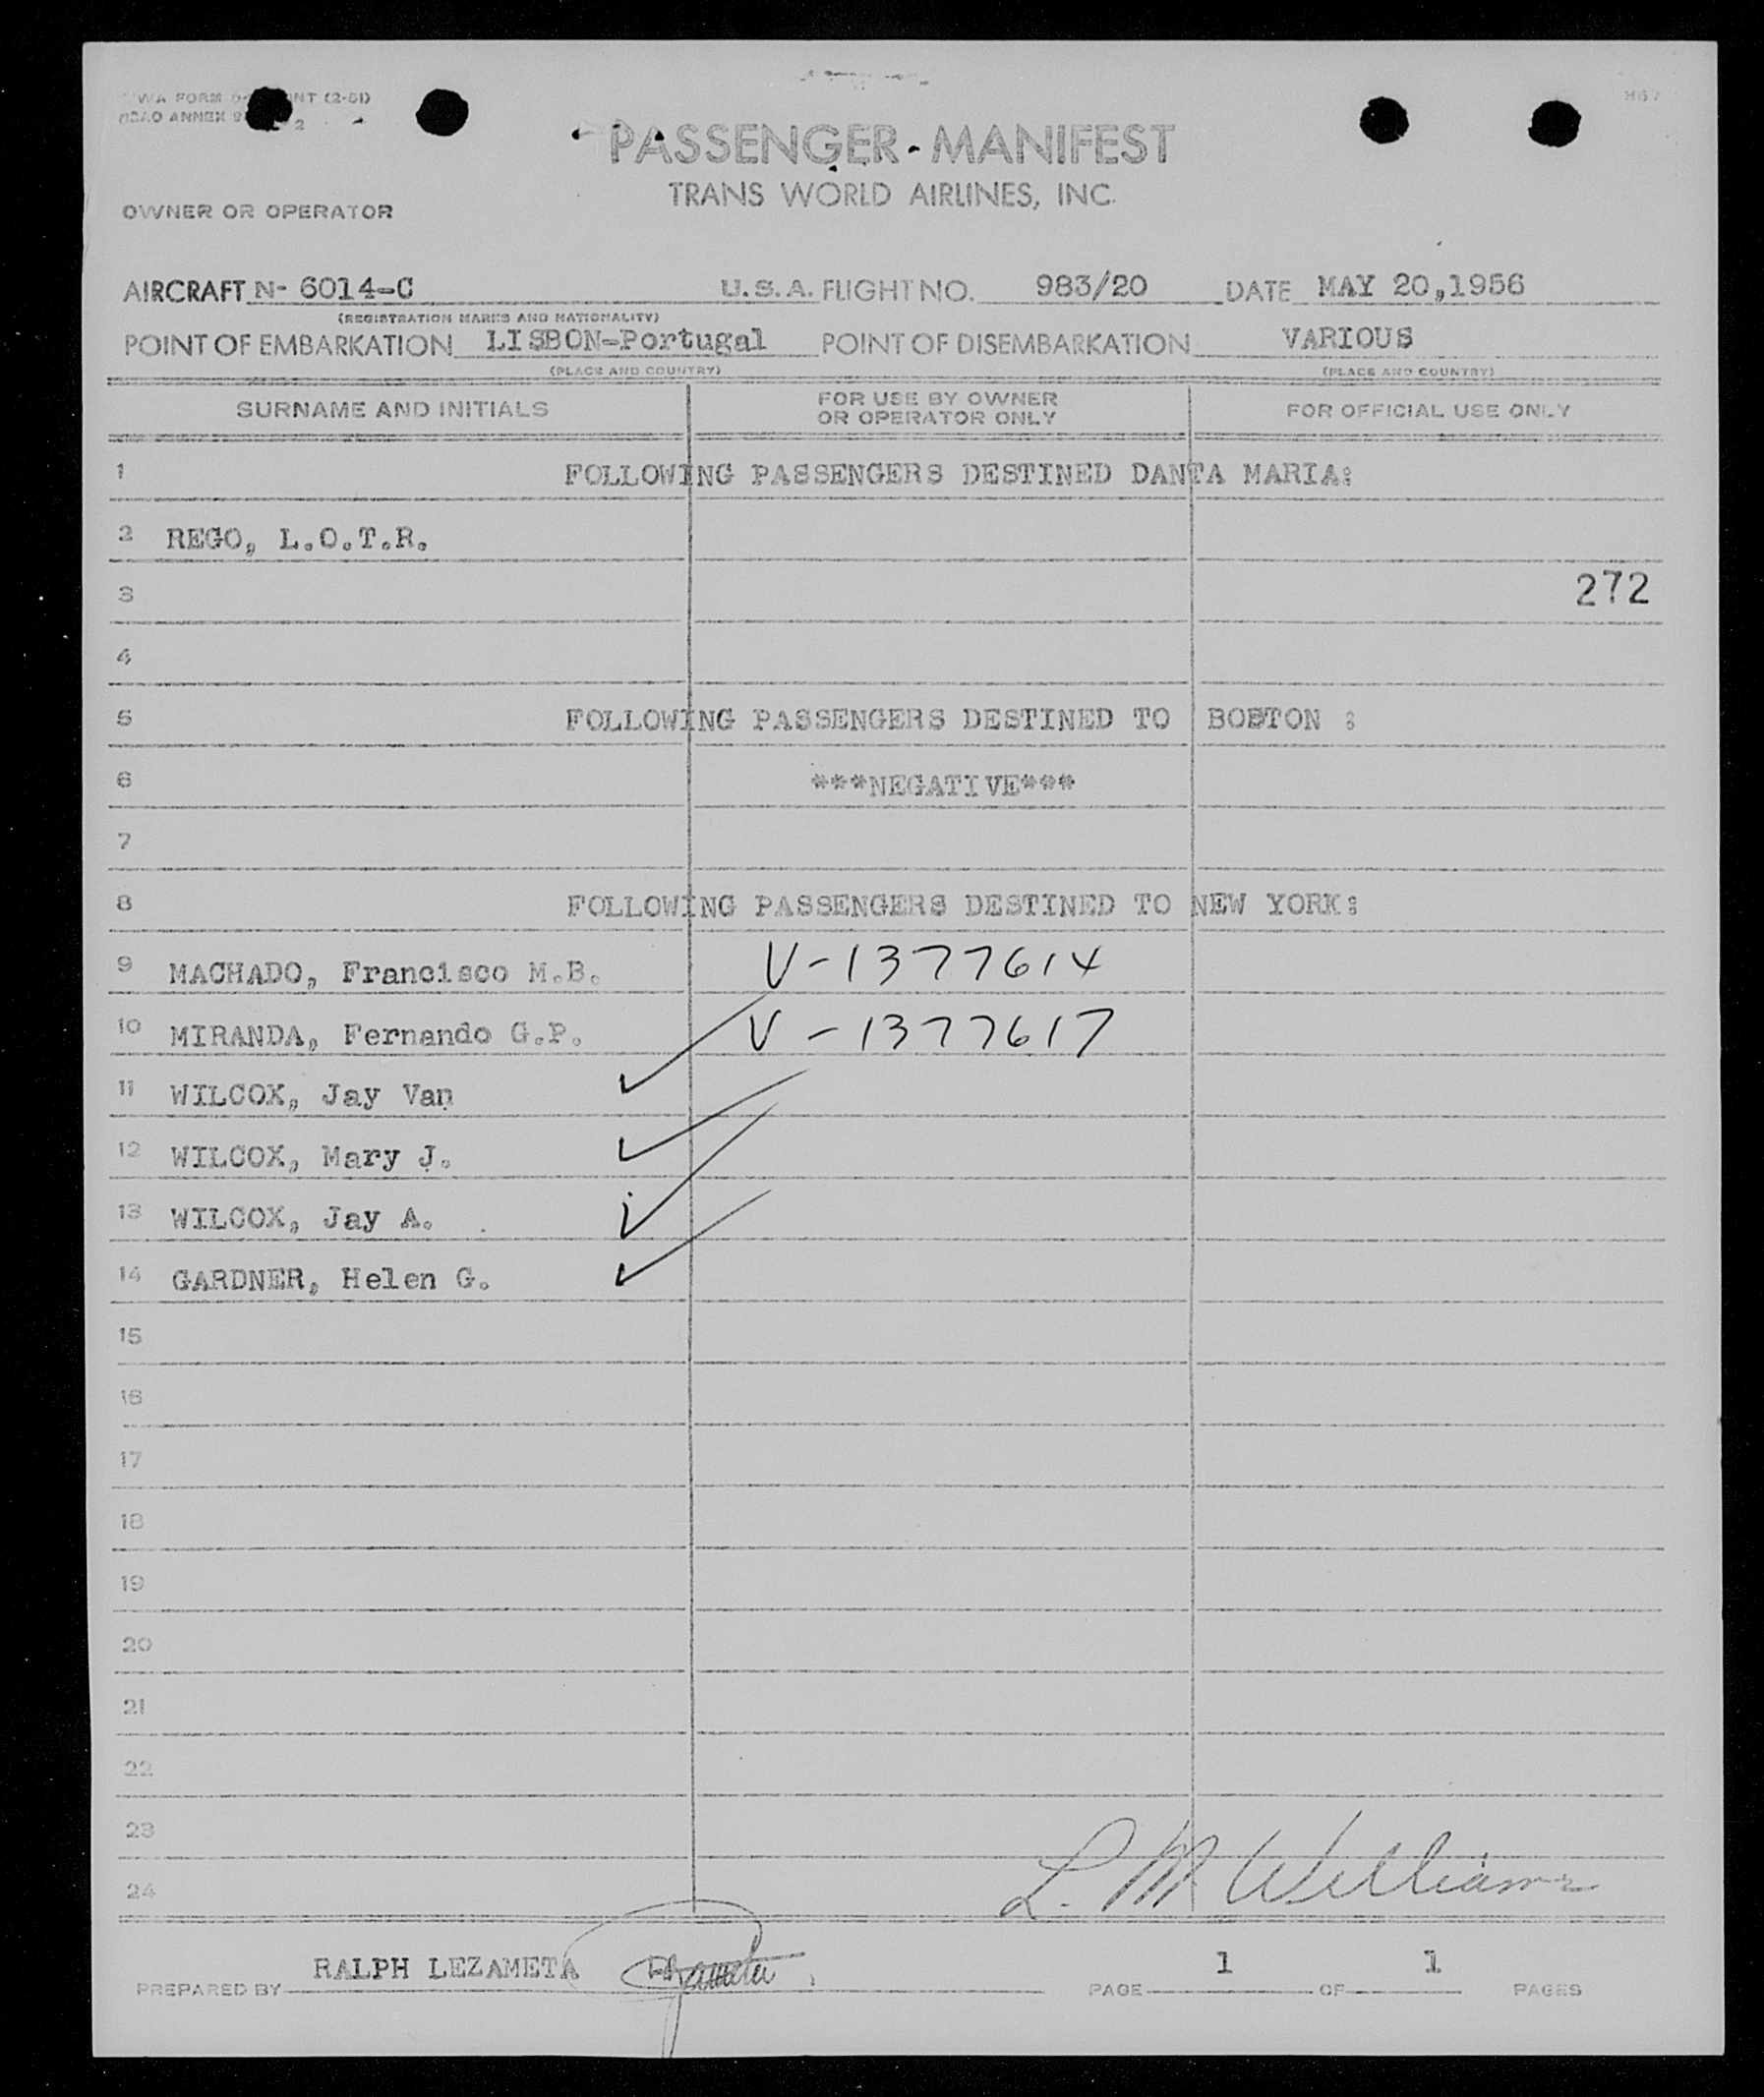 PASSENGER - MANIFEST
TRANS WORLD AIRLINES, INC.
OWNER OR OPERATOR
AIRCRAFT N- 6014-C U.S.A. FLIGHT NO. 983/20 DATE MAY 20,1956
(REGISTRATION MARKS AND NATIONALITY)
POINT OF EMBARKATION LISBON-Portugal POINT OF DISEMBARKATION VARIOUS
(PLACE AND COUNTRY) (PLACE AND COUNTRY)
SURNAME AND INITIALS FOR USE BY OWNER OR OPERATOR ONLY FOR OFFICIAL USE ONLY
1 FOLLOWING PASSENGERS DESTINED DANTA MARIA:
2 REGO, L.O.T.R.
3 272
4
5 FOLLOWING PASSENGERS DESTINED TO BOSTON :
6 ***NEGATIVE***
7
8 FOLLOWING PASSENGERS DESTINED TO NEW YORK:
9 MACHADO, Francisco M.B. V-1377614
10 MIRANDA, Fernando G.P. V-1377617
11 WILCOX, Jay Van
12 WILCOX, Mary J.
13 WILCOX, Jay A.
14 GARDNER, Helen G.
15
16
17
18
19
20
21
22
23
24
L. M. Williams
PREPARED BY RALPH LEZAMETA PAGE 1 OF 1 PAGES